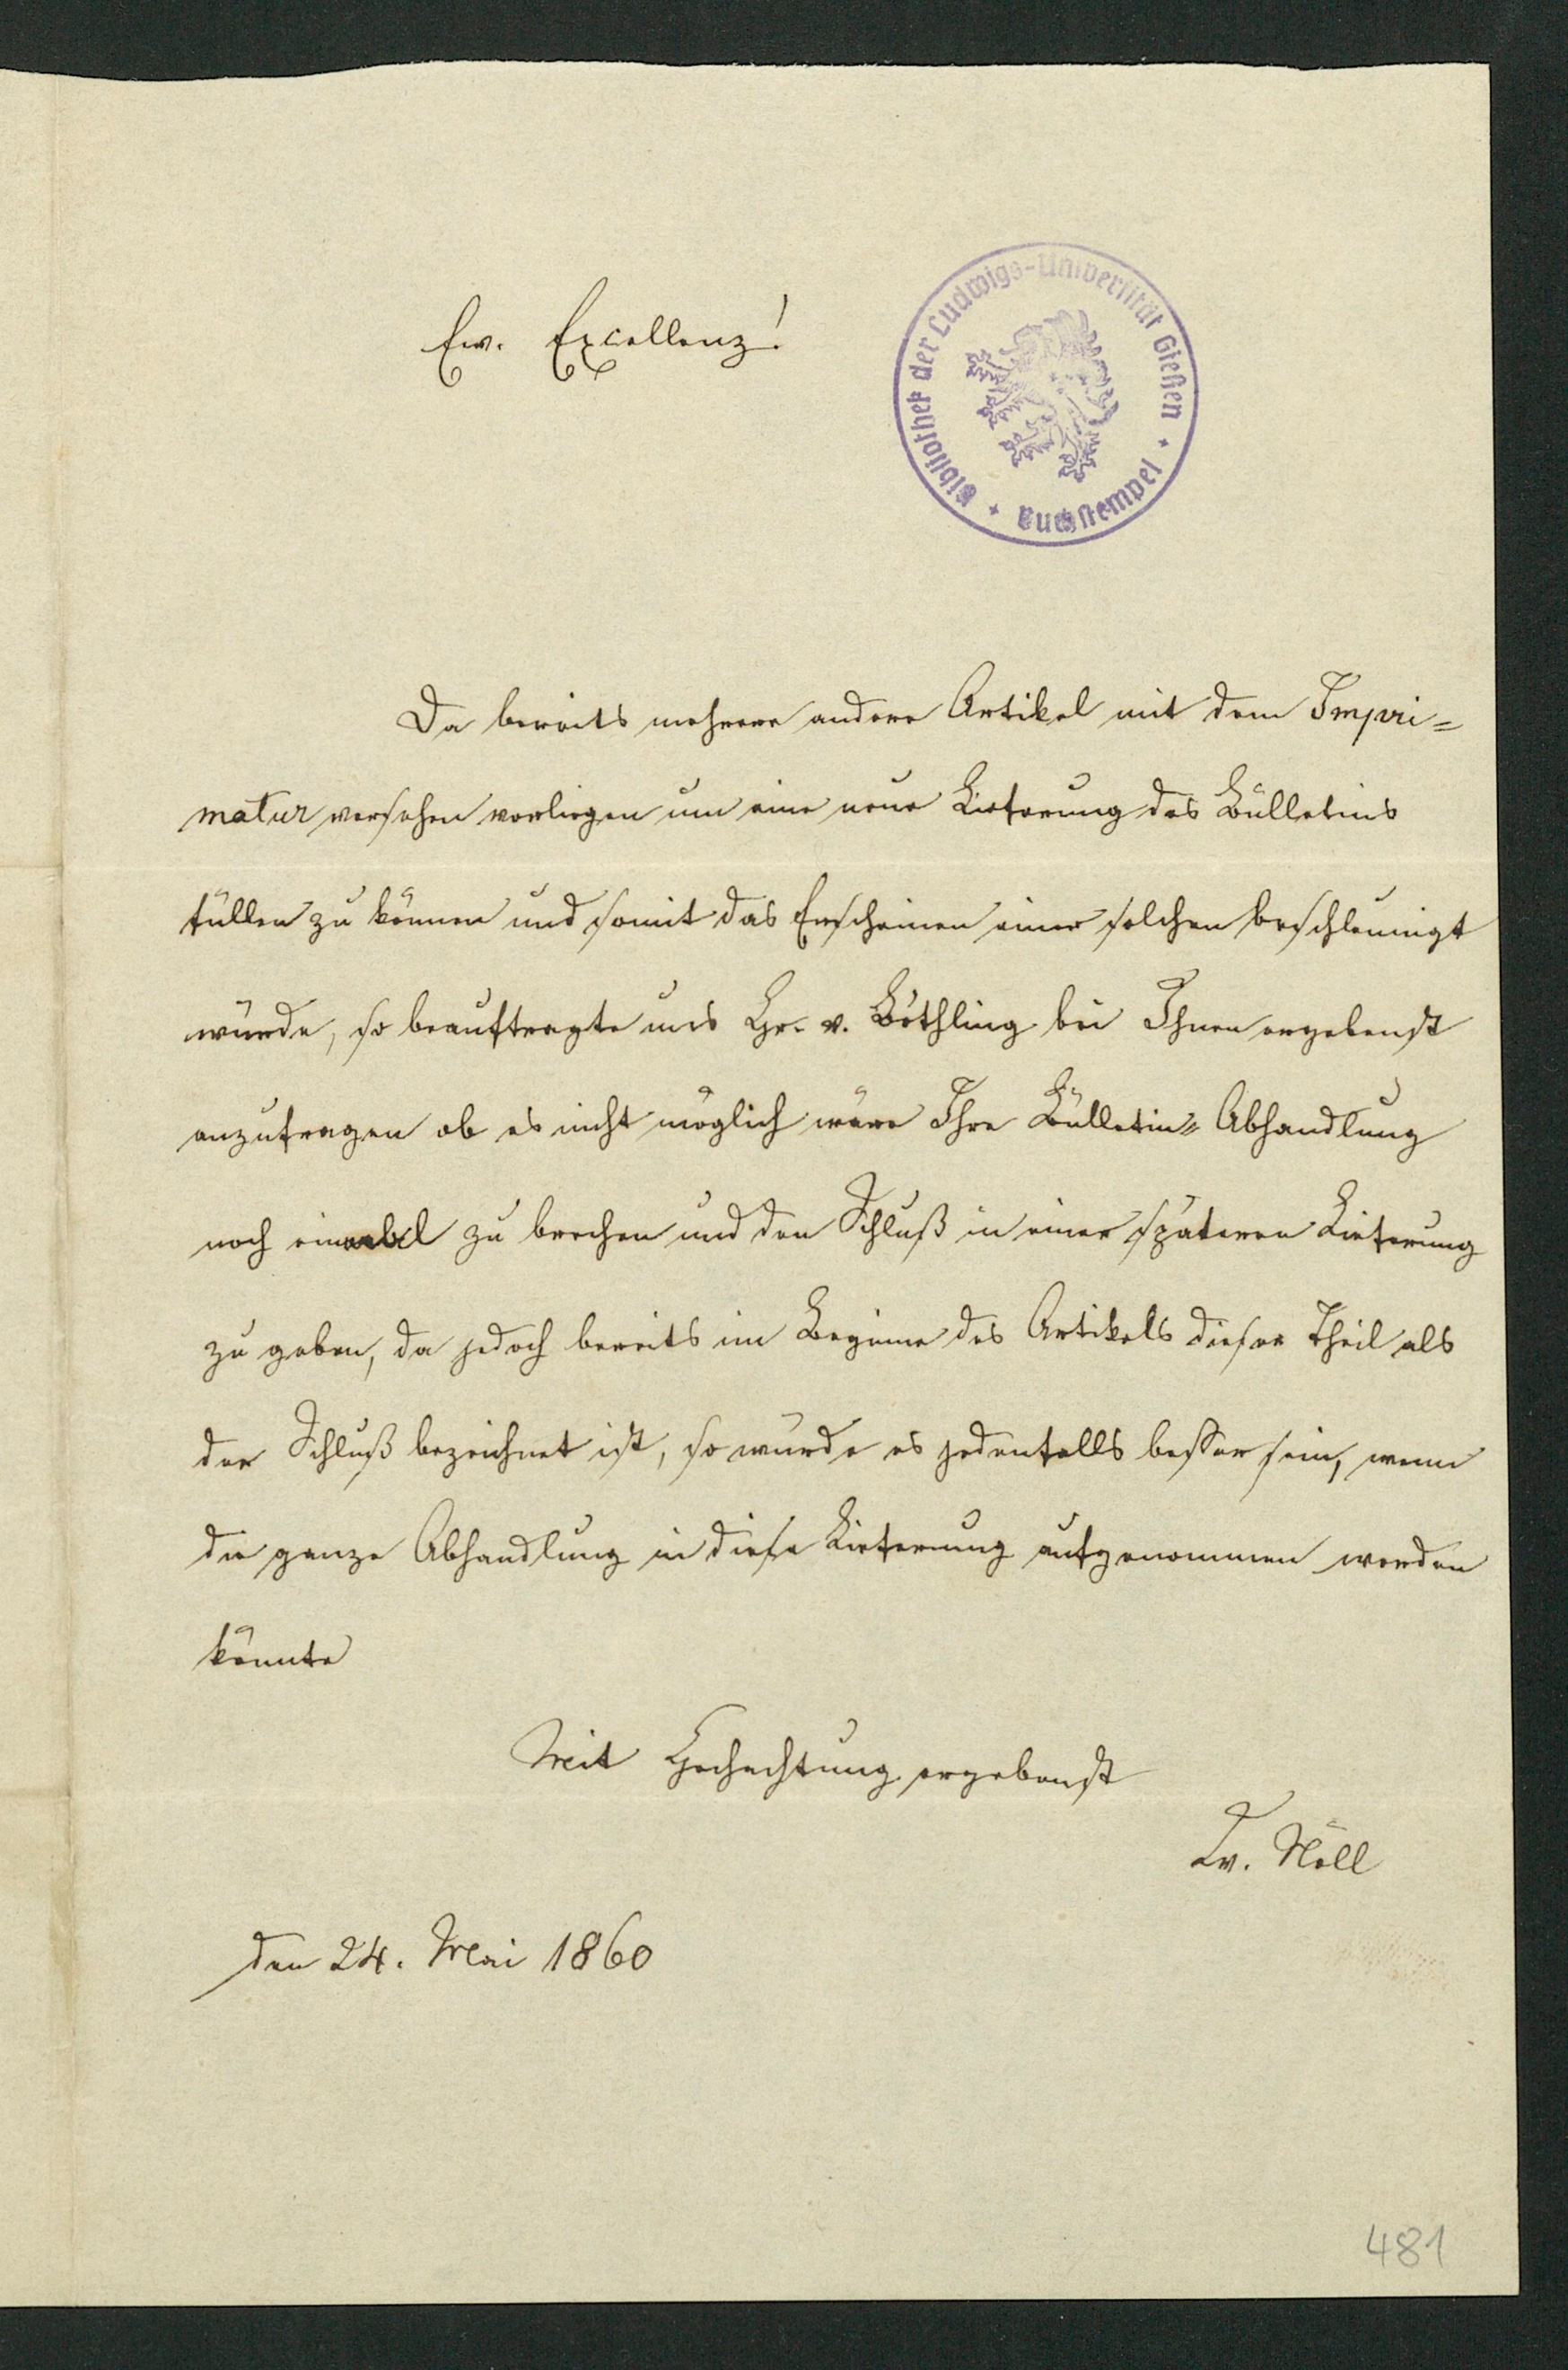 Ew. Excellenz!
Bibliothek der Ludwigs-Universität Gießen + Buchstempel +
Da bereits mehrere andere Artikel mit dem Impri=
matur versehen vorliegen um eine neue Lieferung des Bülletins
füllen zu können und somit das Erscheinen einer solchen beschleunigt
würde, so beauftragte uns Hr. v. Böthling bei Ihnen ergebenst
anzufragen ob es nicht möglich wäre Ihre Bülletin= Abhandlung
noch einmal zu brechen und den Schluß in einer späteren Lieferung
zu geben, da jedoch bereits im Beginne des Artikels dieser Theil als
der Schluß bezeichnet ist, so würde es jedenfalls besser sein, wenn
die ganze Abhandlung in diese Lieferung aufgenommen werden
könnte
Mit Hochachtung ergebenst
Nöll
den 24. Mai 1860
481